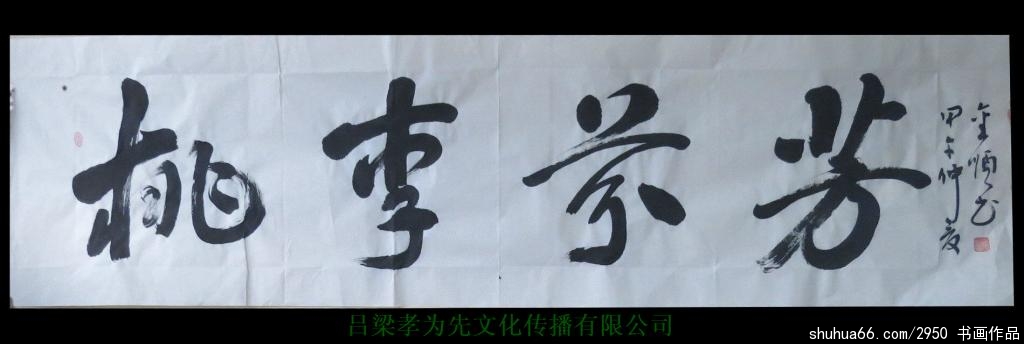 桃李芬芳
甲午仲夏
金顺书
吕梁孝为先文化传播有限公司
shuhua66.com/2950 书画作品